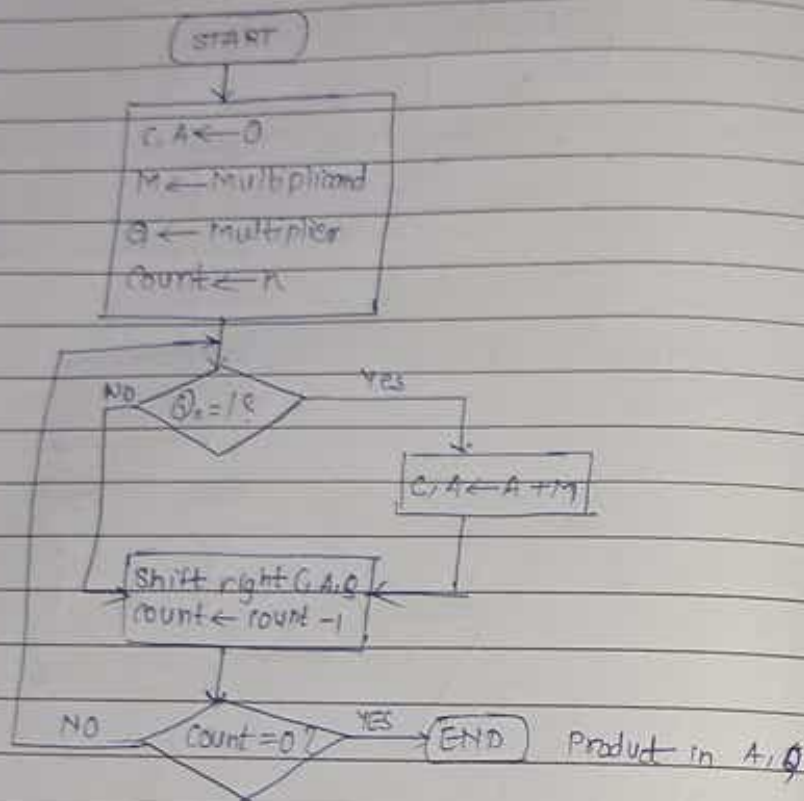 START
C, A ← 0
M ← Multiplicand
Q ← Multiplier
Count ← n
NO
Q₀ = 1?
Yes
C, A ← A + M
Shift right C, A, Q
count ← count -1
NO
Count = 0?
YES
END
Product in A, Q